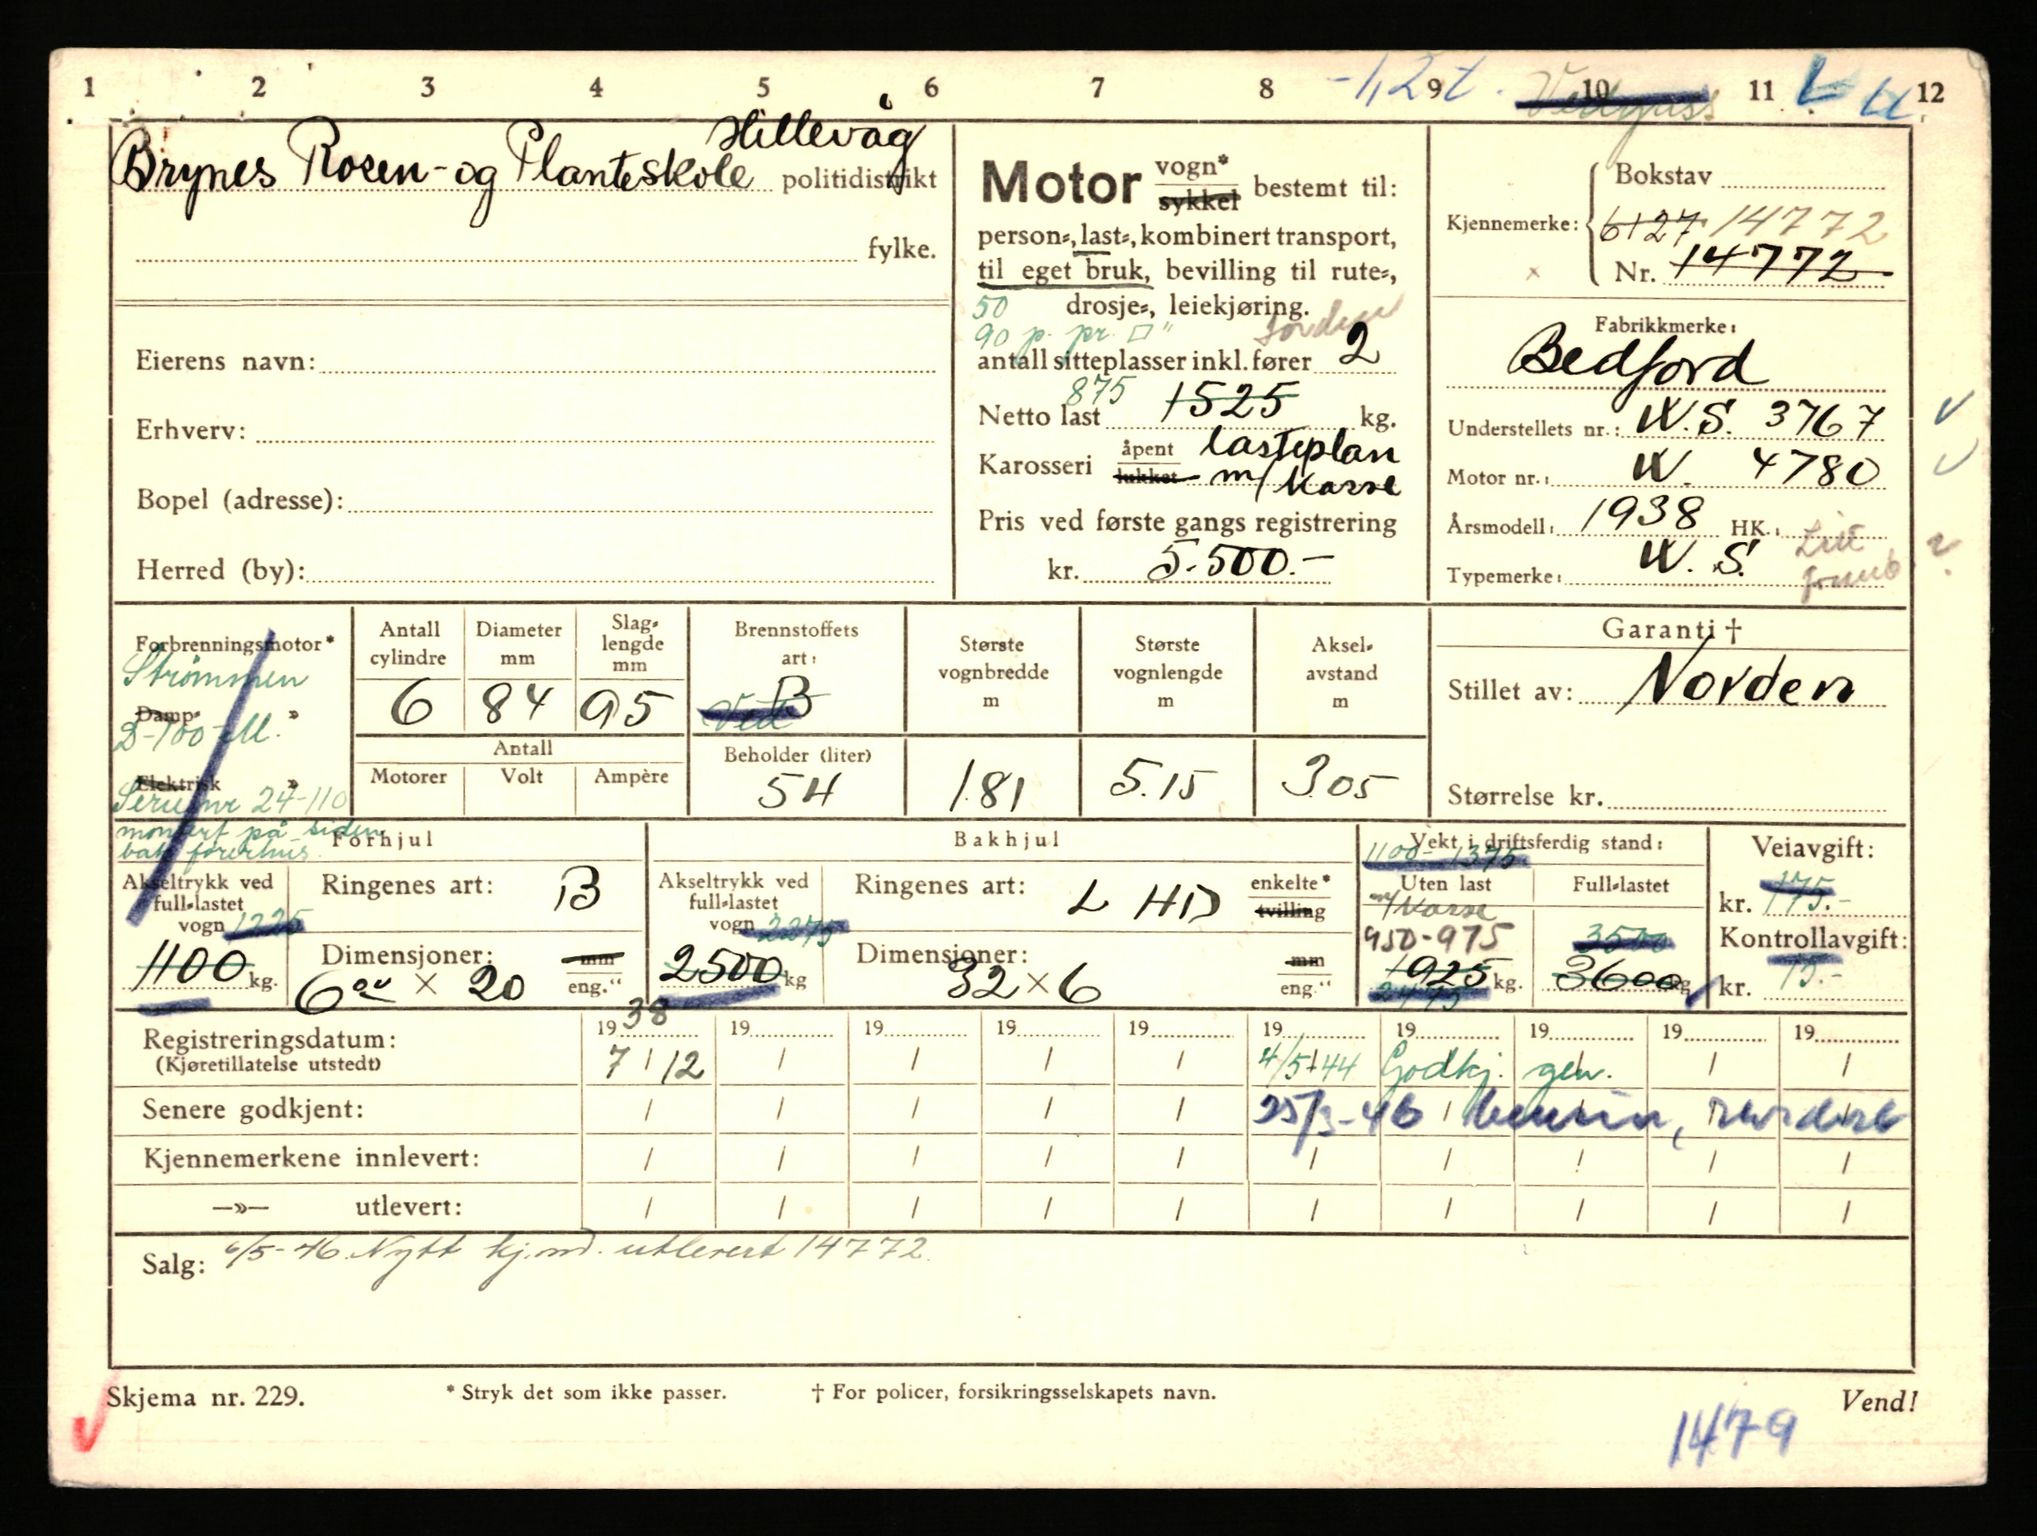 1 2 3 4 5 6 7 8 -1,2 t. 9 Vedgass 10 11 L 12
Hillevåg
Brynes Rosen- og Planteskole politidistrikt
fylke.
Eierens navn:
Erhverv:
Bopel (adresse):
Herred (by):
Motor vogn* sykkel bestemt til:
person-, last-, kombinert transport,
til eget bruk, bevilling til rute-,
50 drosje-, leiekjøring.
90 p. pr. □"
antall sitteplasser inkl. fører 2
875
Netto last 1525 kg.
Karosseri åpent lukket lasteplan
m/ Karse
Pris ved første gangs registrering
kr. 5.500.-
Bokstav
Kjennemerke: 6127 14772
Nr. 14772
Fabrikkmerke:
Bedford
Understellets nr.: W.S. 3767
Motor nr.: W. 4780
Årsmodell: 1938 HK.:
Typemerke: W.S.
Forbrenningsmotor*
Strømmen
Damp- »
D-700-M.
Elektrisk »
Serienr 24-110
montert på siden
bak førerhus.
Antall cylindre
6
Diameter mm
84
Slaglengde mm
95
Antall
Motorer Volt Ampère
Brennstoffets art:
B
Ved
Beholder (liter)
54
Største vognbredde m
1.81
Største vognlengde m
5.15
Akselavstand m
3.05
Garanti †
Stillet av: Norden
Størrelse kr.
Forhjul
Akseltrykk ved
full-lastet
vogn 1225
1100 kg.
Ringenes art: B
Dimensjoner: mm
6.00 × 20 eng."
Bakhjul
Akseltrykk ved
full-lastet
vogn 2275
2500 kg
Ringenes art: L HD enkelte* tvilling
Dimensjoner: mm
32 × 6 eng."
Vekt i driftsferdig stand:
1100- 1375
Uten last Full-lastet
m/ Karse
950-975 3500
1925 kg. 3600 kg
2475
Veiavgift:
kr. 175.-
Kontrollavgift:
kr. 15.-
Registreringsdatum: 1938 19 19 19 19 19 19 19 19 19
(Kjøretillatelse utstedt) 7 / 12 / / / / 4/5-44 Godkj. gen. / /
Senere godkjent: / / / / / 25/3-46 bensin,
Kjennemerkene innlevert: / / / / / / / / / /
—»— utlevert: / / / / / / / / / /
Salg: 6/5-46. Nytt kj.m. utlevert 14772.
Skjema nr. 229. * Stryk det som ikke passer. † For policer, forsikringsselskapets navn. Vend!
1479